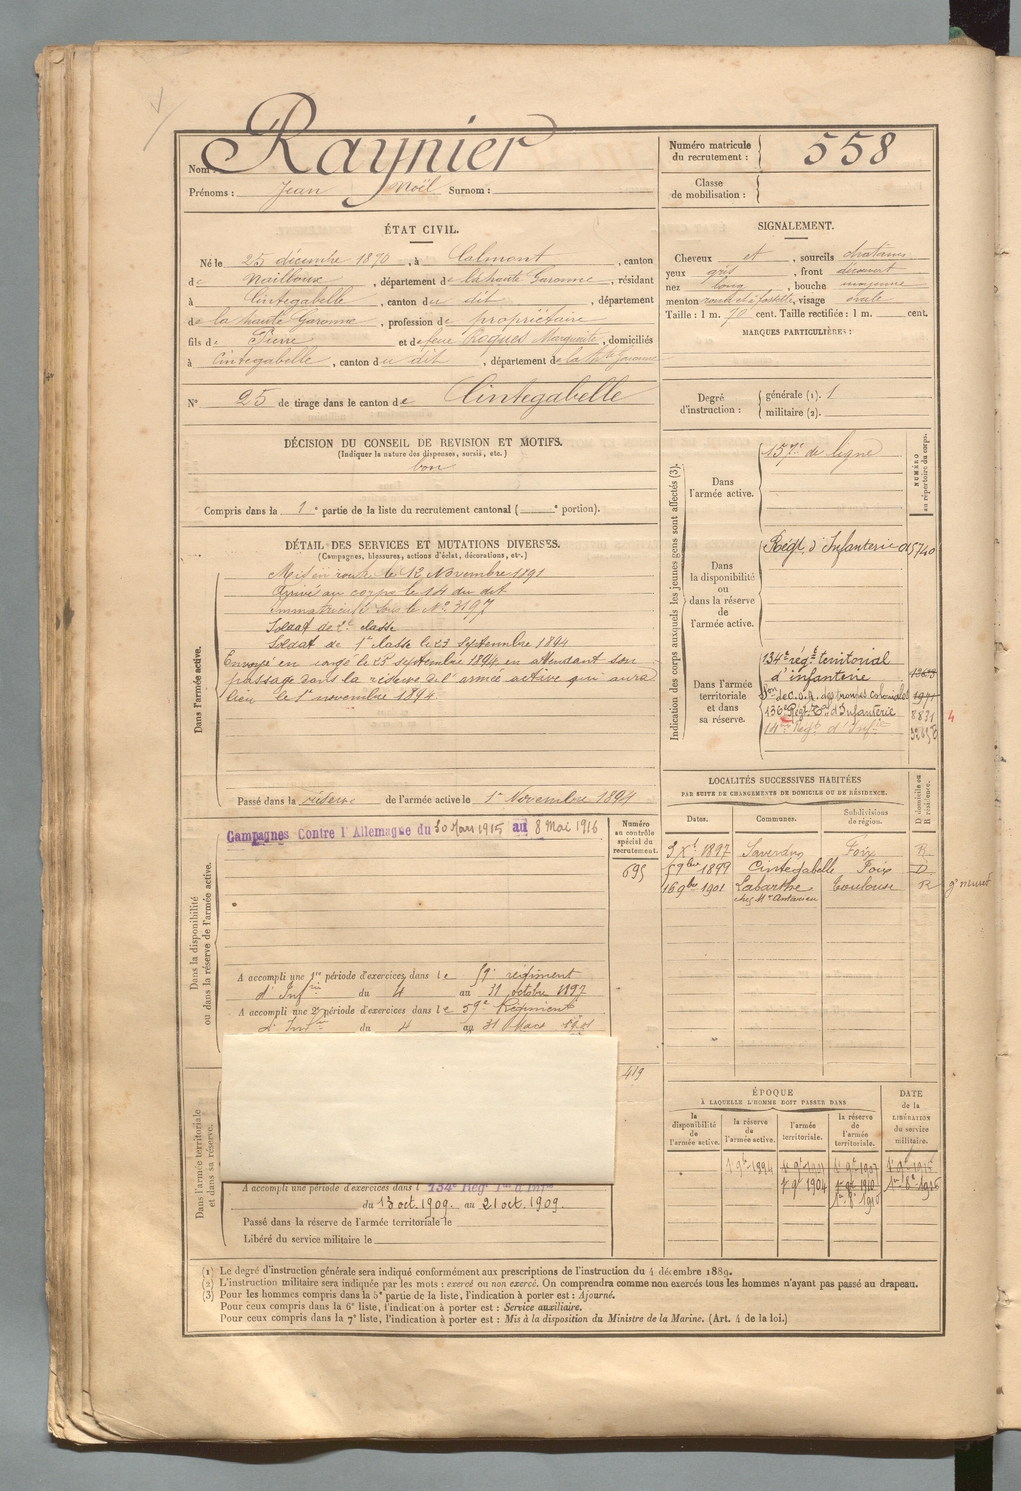 Nom : Raynier
Prénoms : Jean Noël Surnom :
Numéro matricule du recrutement : 558
Classe de mobilisation :
ÉTAT CIVIL.
Né le 25 décembre 1870, à Calmont, canton
de Nailloux, département de la haute Garonne, résidant
à Cintegabelle, canton du dit, département
de la haute Garonne, profession de propriétaire
fils de Pierre et de feue Roques Marguerite, domiciliés
à Cintegabelle, canton du dit, département de la Hte Garonne
N° 25 de tirage dans le canton de Cintegabelle
SIGNALEMENT.
Cheveux et, sourcils chatains
yeux gris, front découvert
nez long, bouche moyenne
menton rond et à fossette, visage ovale
Taille : 1 m. 70 cent. Taille rectifiée : 1 m. cent.
MARQUES PARTICULIÈRES :
Degré d'instruction : générale (1). 1
militaire (2).
DÉCISION DU CONSEIL DE REVISION ET MOTIFS.
(Indiquer la nature des dispenses, sursis, etc.)
bon
Compris dans la 1e partie de la liste du recrutement cantonal ( e portion).
DÉTAIL DES SERVICES ET MUTATIONS DIVERSES.
(Campagnes, blessures, actions d'éclat, décorations, etc.)
Dans l'armée active.
Mis en route le 12 Novembre 1891
Arrivé au corps le 14 du dit
Immatriculé sous le N° 3197
Soldat de 2e classe
Soldat de 1e classe le 23 septembre 1894
Envoyé en congé le 25 septembre 1894 en attendant son
passage dans la réserve de l'armée active qui aura
lieu le 1er novembre 1894
Passé dans la réserve de l'armée active le 1er Novembre 1894
Indication des corps auxquels les jeunes gens sont affectés (3).
NUMÉRO au répertoire du corps.
Dans l'armée active.
157e de ligne
Dans la disponibilité ou dans la réserve de l'armée active.
Régt d'Infanterie
Dans l'armée territoriale et dans sa réserve.
134e régt territorial
d'infanterie
des troupes coloniales
136e Régt T. d'Infanterie 8831 4
14e Régt d'Infie
Dans la disponibilité ou dans la réserve de l'armée active.
Campagnes Contre l'Allemagne du 30 Mars 1915 au 8 Mai 1916
Numéro au contrôle spécial du recrutement.
695
A accompli une 1re période d'exercices dans le 59e régiment
d'Infrie du 4 au 31 octobre 1897
A accompli une 2e période d'exercices dans le 59e Régiment
d'Infie du 4 au 31 Mars 1901
419
LOCALITÉS SUCCESSIVES HABITÉES
PAR SUITE DE CHANGEMENTS DE DOMICILE OU DE RÉSIDENCE.
D. domicile ou R. résidence.
Dates. Communes. Subdivisions de région.
3 Xbre 1897 Saverdun Foix R
5 9bre 1899 Cintegabelle Foix D
16 9bre 1901 Labarthe Toulouse R
chez Mr
Dans l'armée territoriale et dans sa réserve.
A accompli une période d'exercices dans l 134e Régt
du 13 oct. 1909. au 21 oct. 1909.
Passé dans la réserve de l'armée territoriale le
Libéré du service militaire le
ÉPOQUE
À LAQUELLE L'HOMME DOIT PASSER DANS
DATE de la LIBÉRATION du service militaire.
la disponibilité de l'armée active. la réserve de l'armée active. l'armée territoriale. la réserve de l'armée territoriale.
1er 9bre 1894
1904 1910 1916
(1) Le degré d'instruction générale sera indiqué conformément aux prescriptions de l'instruction du 4 décembre 1889.
(2) L'instruction militaire sera indiquée par les mots : exercé ou non exercé. On comprendra comme non exercés tous les hommes n'ayant pas passé au drapeau.
(3) Pour les hommes compris dans la 5e partie de la liste, l'indication à porter est : Ajourné.
Pour ceux compris dans la 6e liste, l'indication à porter est : Service auxiliaire.
Pour ceux compris dans la 7e liste, l'indication à porter est : Mis à la disposition du Ministre de la Marine. (Art. 4 de la loi.)